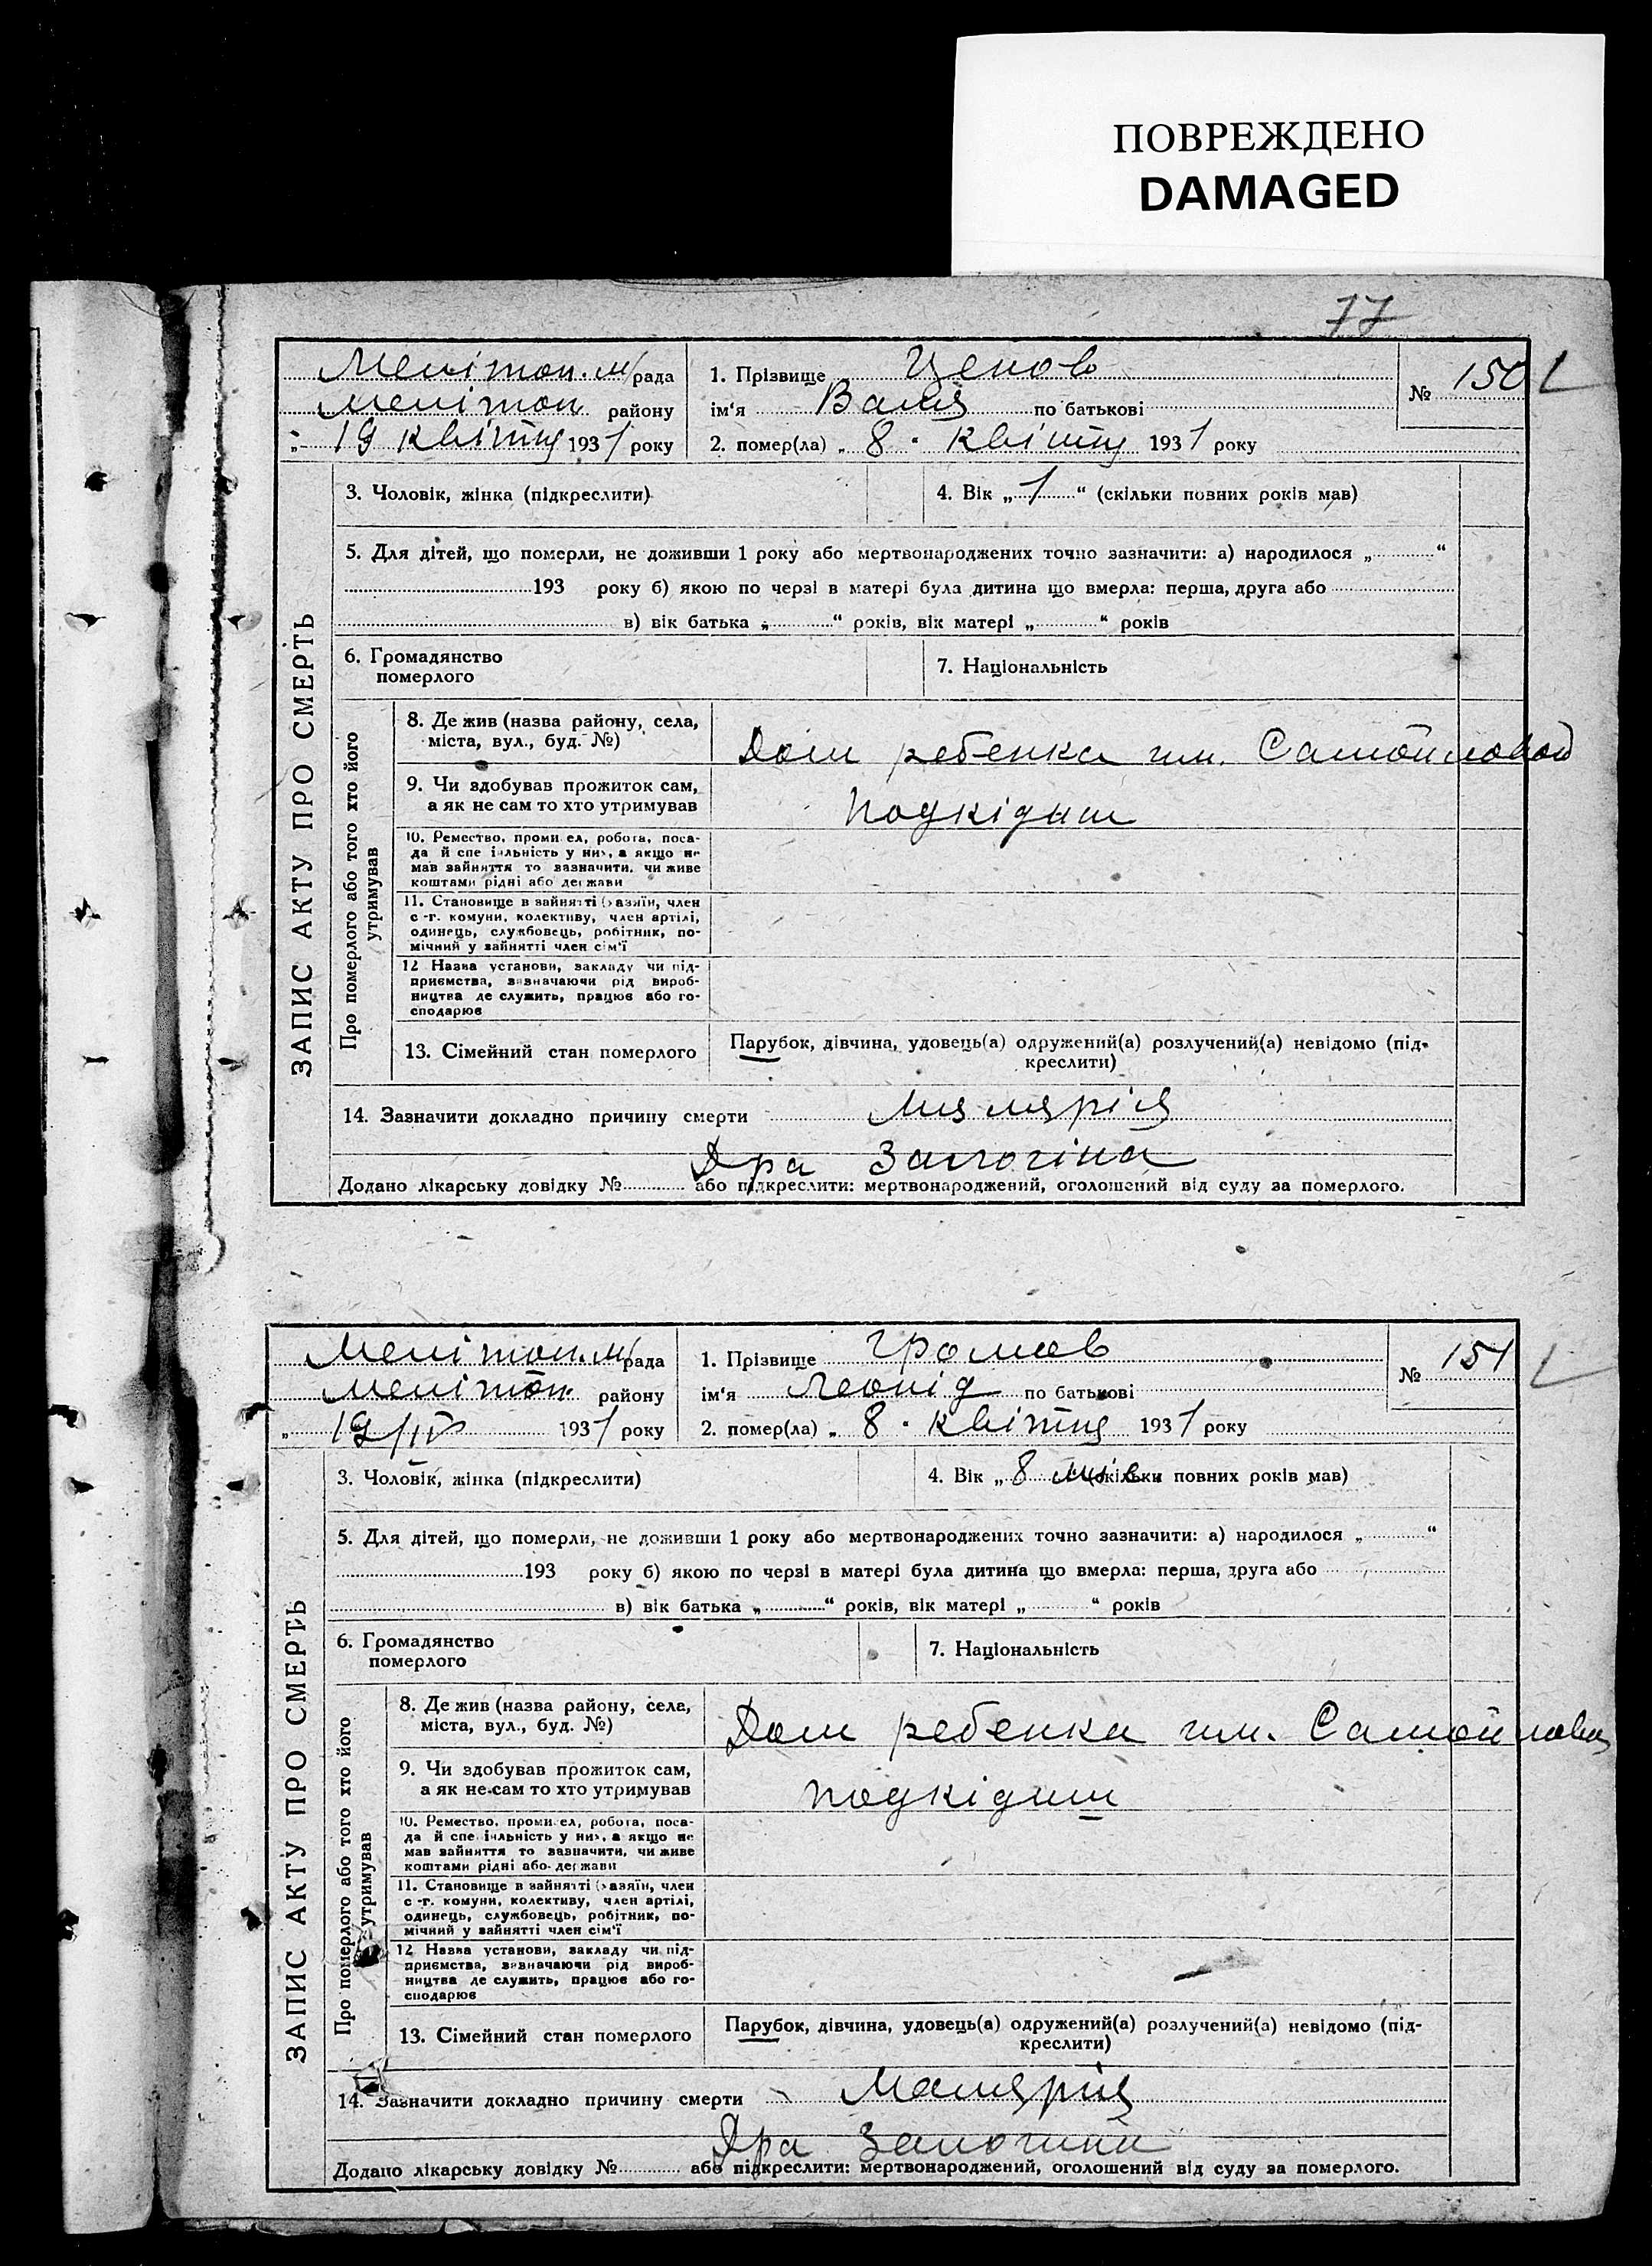 ПОВРЕЖДЕНО
DAMAGED
77
Мелітоп. м/рада
Мелітоп району
„ 19 квітня 1931 року
1. Прізвище Ценов
ім‘я Ваня по батькові
2. помер(ла) „ 8 " квітня 1931 року
№ 150
3. Чоловік, жінка (підкреслити)
4. Вік „ 1 “ (скільки повних років мав)
5. Для дітей, що померли, не доживши 1 року або мертвонароджених точно зазначити: а) народилося „ “
193 року б) якою по черзі в матері була дитина що вмерла: перша, друга або
в) вік батька „ “ років, вік матері „ “ років
6. Громадянство
померлого
7. Національність
ЗАПИС АКТУ ПРО СМЕРТЬ
Про померлого або того хто його
утримував
8. Де жив (назва району, села,
міста, вул., буд. №)
Дом ребенка им. Самойловой
9. Чи здобував прожиток сам,
а як не сам то хто утримував
подкідиш
10. Ремество, промисел, робота, поса-
да й спеціяльність у них, а якщо не
мав зайняття то зазначити, чи живе
коштами рідні або держави
11. Становище в зайнятті (хазяїн, член
с.-г. комуни, колективу, член артілі,
одинець, службовець, робітник, по-
мічний у зайнятті член сім‘ї
12 Назва установи, закладу чи під-
приємства, зазначаючи рід вироб-
ництва де служить, працює або го-
сподарює
13. Сімейний стан померлого
Парубок, дівчина, удовець(а) одружений(а) розлучений(а) невідомо (під-
креслити)
14. Зазначити докладно причину смерти Малярія
Дра
Додано лікарську довідку № або підкреслити: мертвонароджений, оголошений від суду за померлого.
Мелітоп. м/рада
Мелітоп. району
„ 19/IV 1931 року
1. Прізвище Громов
ім‘я Леонід по батькові
2. помер(ла) „ 8 " квітня 1931 року
№ 151
3. Чоловік, жінка (підкреслити)
4. Вік „ 8 міс. (скільки повних років мав)
5. Для дітей, що померли, не доживши 1 року або мертвонароджених точно зазначити: а) народилося „ “
193 року б) якою по черзі в матері була дитина що вмерла: перша, друга або
в) вік батька „ “ років, вік матері „ “ років
6. Громадянство
померлого
7. Національність
ЗАПИС АКТУ ПРО СМЕРТЬ
Про померлого або того хто його
утримував
8. Де жив (назва району, села,
міста, вул., буд. №)
Дом ребенка им. Самойловой
9. Чи здобував прожиток сам,
а як не сам то хто утримував
подкідиш
10. Ремество, промисел, робота, поса-
да й спеціяльність у них, а якщо не
мав зайняття то зазначити, чи живе
коштами рідні або держави
11. Становище в зайнятті (хазяїн, член
с.-г. комуни, колективу, член артілі,
одинець, службовець, робітник, по-
мічний у зайнятті член сім‘ї
12 Назва установи, закладу чи під-
приємства, зазначаючи рід вироб-
ництва де служить, працює або го-
сподарює
13. Сімейний стан померлого
Парубок, дівчина, удовець(а) одружений(а) розлучений(а) невідомо (під-
креслити)
14. Зазначити докладно причину смерти Малярія
Дра
Додано лікарську довідку № або підкреслити: мертвонароджений, оголошений від суду за померлого.